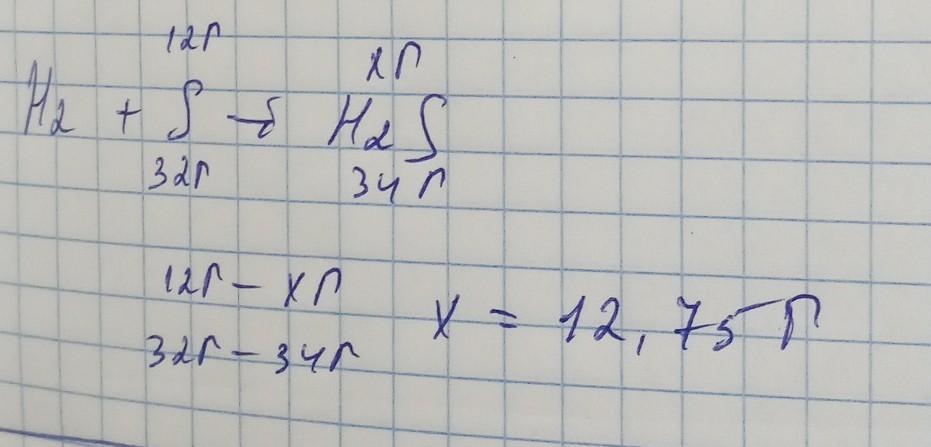 12г xг
H2 + S → H2S
32г 34г
12г – xг
32г – 34г x = 12,75 г